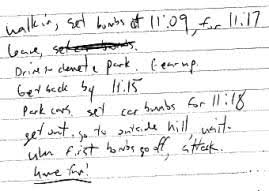 walk in, set bombs at 11:09, for 11:17
leave, set car bombs.
Drive to clemete park. Gearup.
Get back by 11:15
Park cars. set car bombs for 11:18
get out, go to outside hill, wait.
when first bombs go off, attack.
have fun!